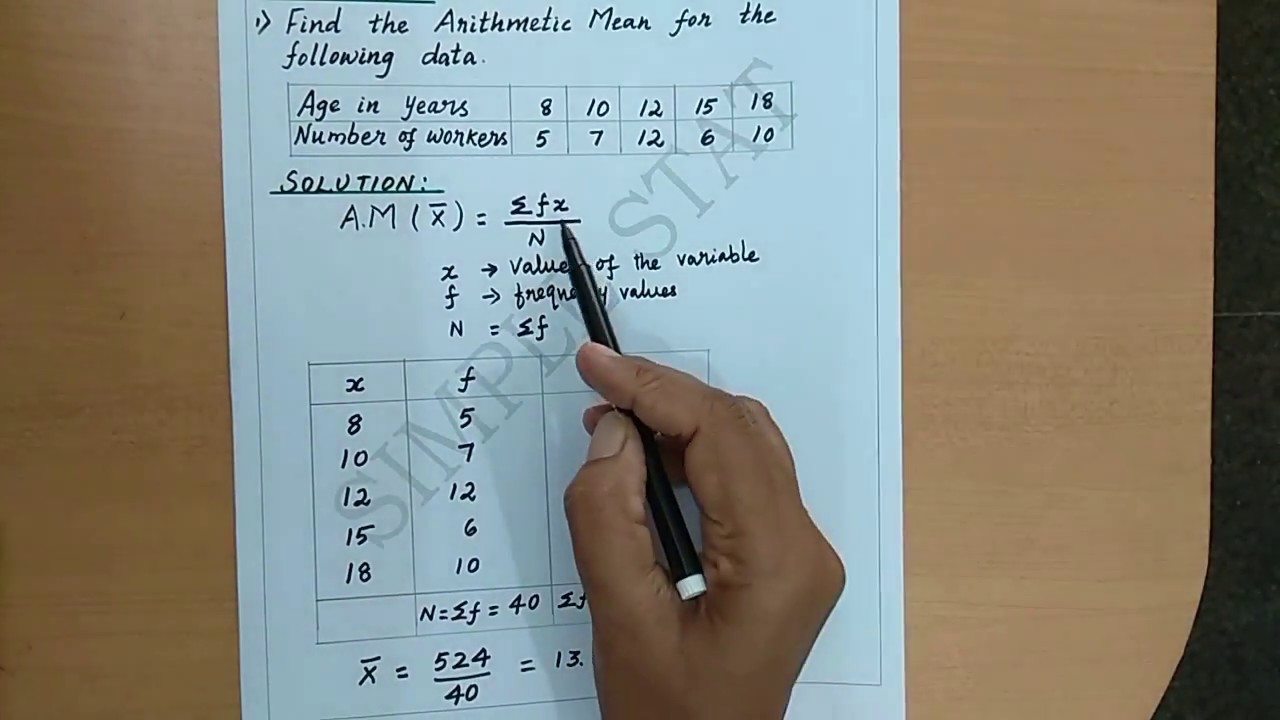 1) Find the Arithmetic Mean for the
following data.
Age in years 8 10 12 15 18
Number of workers 5 7 12 6 10
SOLUTION:
A.M ( x̅ ) = Σfx
N
x → Values of the variable
f → frequency values
N = Σf
x f
8 5
10 7
12 12
15 6
18 10
N = Σf = 40 Σf
x̅ = 524 = 13.
40
SIMPLE STAT